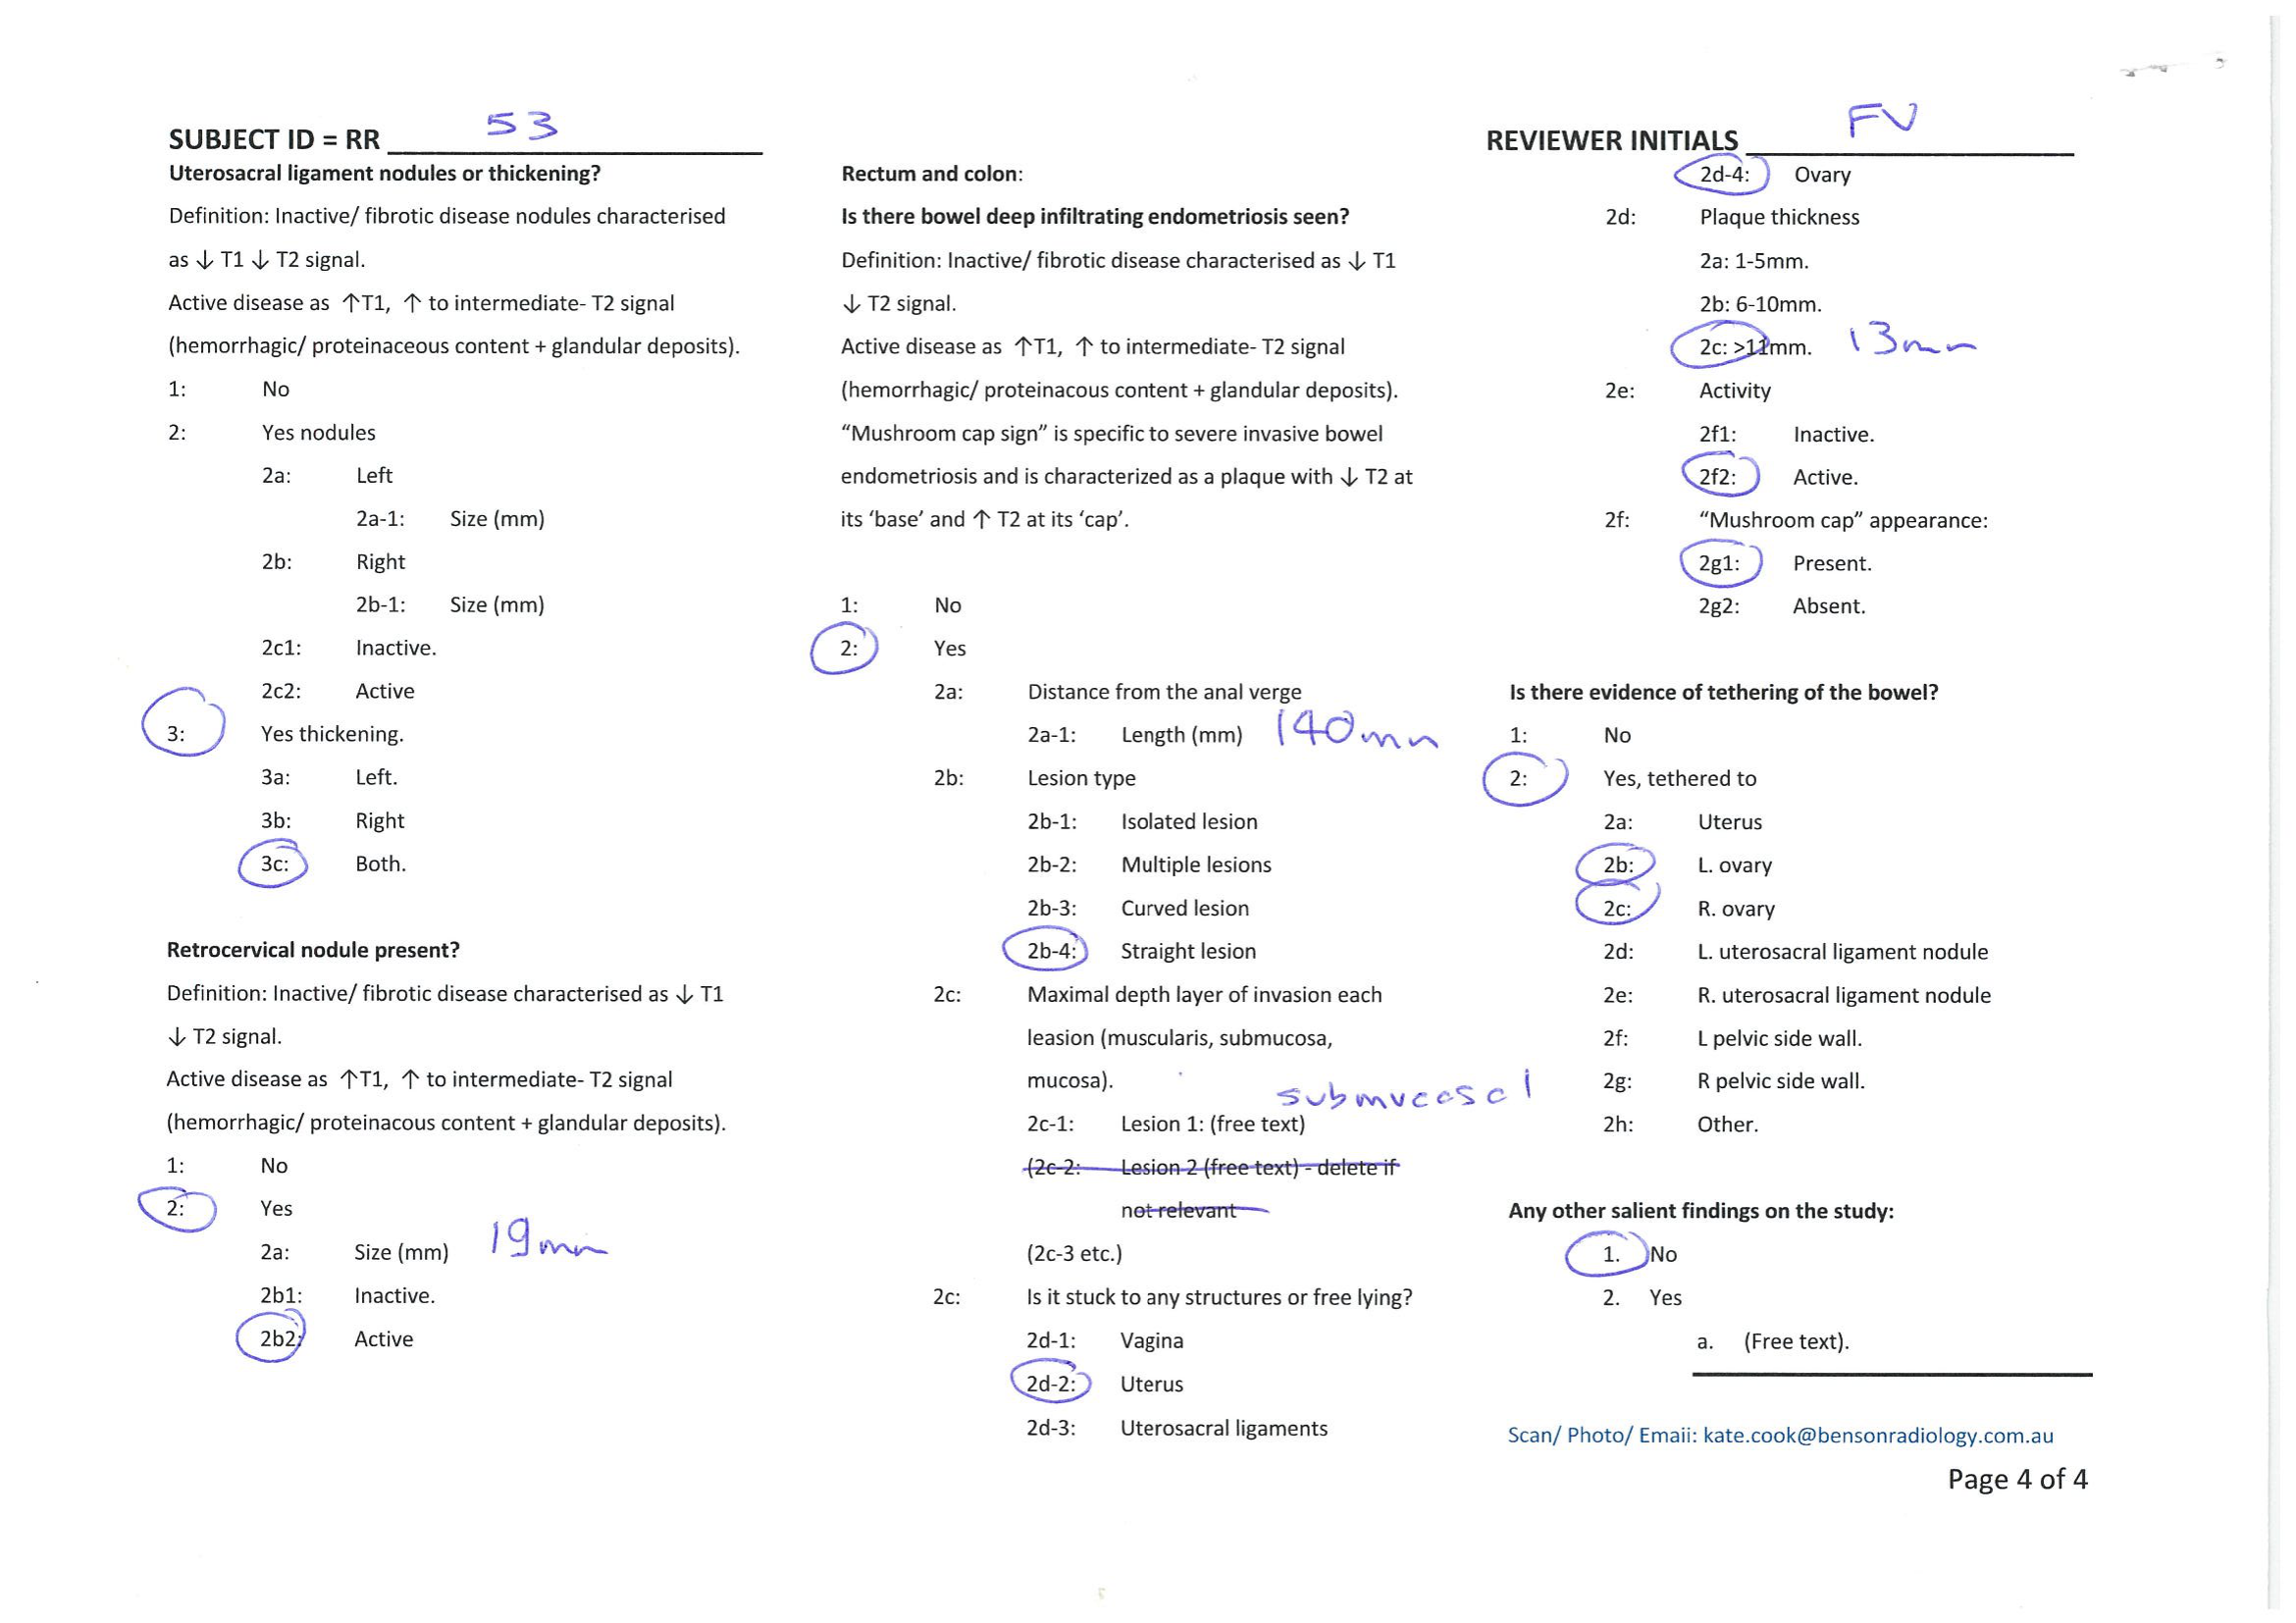 SUBJECT ID = RR 53
REVIEWER INITIALS FV
Uterosacral ligament nodules or thickening?
Definition: Inactive/ fibrotic disease nodules characterised
as ↓ T1 ↓ T2 signal.
Active disease as ↑T1, ↑ to intermediate- T2 signal
(hemorrhagic/ proteinaceous content + glandular deposits).
1: No
2: Yes nodules
2a: Left
2a-1: Size (mm)
2b: Right
2b-1: Size (mm)
2c1: Inactive.
2c2: Active
3: Yes thickening.
3a: Left.
3b: Right
3c: Both.
Retrocervical nodule present?
Definition: Inactive/ fibrotic disease characterised as ↓ T1
↓ T2 signal.
Active disease as ↑T1, ↑ to intermediate- T2 signal
(hemorrhagic/ proteinacous content + glandular deposits).
1: No
2: Yes
2a: Size (mm) 19mm
2b1: Inactive.
2b2: Active
Rectum and colon:
Is there bowel deep infiltrating endometriosis seen?
Definition: Inactive/ fibrotic disease characterised as ↓ T1
↓ T2 signal.
Active disease as ↑T1, ↑ to intermediate- T2 signal
(hemorrhagic/ proteinacous content + glandular deposits).
“Mushroom cap sign” is specific to severe invasive bowel
endometriosis and is characterized as a plaque with ↓ T2 at
its ‘base’ and ↑ T2 at its ‘cap’.
1: No
2: Yes
2a: Distance from the anal verge
2a-1: Length (mm) 140mm
2b: Lesion type
2b-1: Isolated lesion
2b-2: Multiple lesions
2b-3: Curved lesion
2b-4: Straight lesion
2c: Maximal depth layer of invasion each
leasion (muscularis, submucosa,
mucosa).
submucosal
2c-1: Lesion 1: (free text)
(2c-2: Lesion 2 (free text) - delete if
not relevant
(2c-3 etc.)
2c: Is it stuck to any structures or free lying?
2d-1: Vagina
2d-2: Uterus
2d-3: Uterosacral ligaments
2d-4: Ovary
2d: Plaque thickness
2a: 1-5mm.
2b: 6-10mm.
2c: >11mm. 13mm
2e: Activity
2f1: Inactive.
2f2: Active.
2f: “Mushroom cap” appearance:
2g1: Present.
2g2: Absent.
Is there evidence of tethering of the bowel?
1: No
2: Yes, tethered to
2a: Uterus
2b: L. ovary
2c: R. ovary
2d: L. uterosacral ligament nodule
2e: R. uterosacral ligament nodule
2f: L pelvic side wall.
2g: R pelvic side wall.
2h: Other.
Any other salient findings on the study:
1. No
2. Yes
a. (Free text).
Scan/ Photo/ Emaii: kate.cook@bensonradiology.com.au
Page 4 of 4